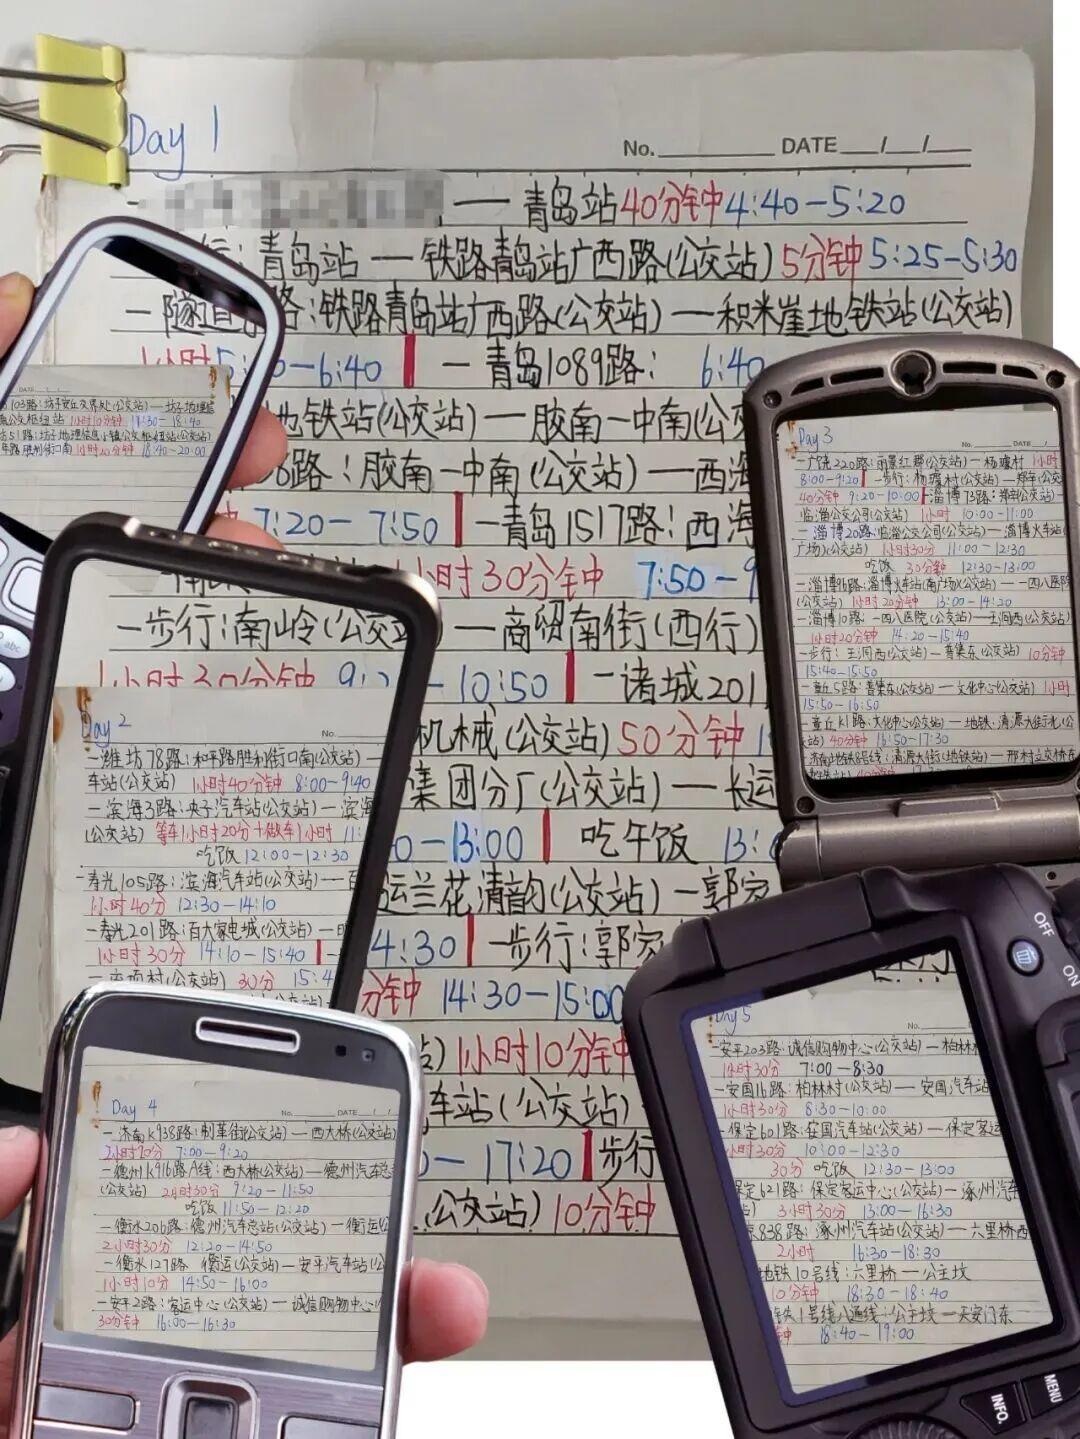 Day 1
No. DATE / /
— 青岛站 40分钟 4:40—5:20
行: 青岛站 — 铁路青岛站广西路(公交站) 5分钟 5:25—5:30
—隧道 路:铁路青岛站广西路(公交站) —积米崖地铁站(公交站)
1小时 —6:40 —青岛1089路: 6:40
地铁站(公交站) —胶南一中南(公交
路:胶南一中南(公交站) —西海
7:20—7:50 —青岛1517路:西海
1小时30分钟 7:50—9
—步行:南岭(公交站) —商贸南街(西行)
1小时30分钟 —10:50 —诸城201
机械(公交站) 50分钟
集团分厂(公交站) —长运
—13:00 吃午饭 13:
运兰花清韵(公交站) —郭家
4:30 —步行:郭家
分钟 14:30—15:00
1小时10分钟
车站(公交站)
—17:20 步行
(公交站) 10分钟
DATE / /
103路:坊子安丘交界处(公交站) — 坊子地理信
公交枢纽站 1小时10分钟 —18:40
51路:坊子地理信息小镇公交枢纽站(公交站)
胜利街口南 1小时20分钟 18:40—20:00
Day 2
No.
—潍坊78路:和平路胜利街口南(公交站) —
车站(公交站) 1小时40分钟 8:00—9:40
—滨海3路:央子汽车站(公交站) —滨海
(公交站) 等车1小时20分+做车1小时 11:
吃饭 12:00—12:30
—寿光105路:滨海汽车站(公交站) —
1小时40分 12:30—14:10
—寿光201路:百大家电城(公交站) —
1小时30分 14:10—15:40
(公交站) 30分 15:4
Day 3
No. DATE /
—广饶220路:丽景红郡(公交站) —杨疃村 1小时
8:00—9:20 —步行:杨疃村(公交站) —郑辛(公交
40分钟 9:20—10:00 —淄博73路:郑辛(公交站) —
临淄公交公司(公交站) 1小时 10:00—11:00
—淄博20路:临淄公交公司(公交站) —淄博火车站(
广场)(公交站) 1小时30分 11:00—12:30
吃饭 30分钟 12:30—13:00
—淄博96路:淄博火车站(南广场)(公交站) —一四八医院
(公交站) 1小时20分钟 13:00—14:20
—淄博10路:一四八医院(公交站) —王洞西(公交站)
1小时20分钟 14:20—15:40
—步行:王洞西(公交站) —普集东(公交站) 10分钟
15:40—15:50
—章丘5路:普集东(公交站) —文化中心(公交站) 1小时
15:50—16:50
—章丘K1路:文化中心(公交站) —地铁:清源大街北(公
交站) 40分钟 16:50—17:30
—济南地铁8号线:清源大街(地铁站) —邢村立交桥东
Day 4
No. DATE / /
—济南K938路:制革街(公交站) —西大桥(公交站)
2小时20分 7:00—9:20
—德州K916路A线:西大桥(公交站) —德州汽车总
(公交站) 2小时30分 9:20—11:50
吃饭 11:50—12:20
—衡水206路:德州汽车总站(公交站) —衡运(公
2小时30分 12:20—14:50
—衡水127路 衡运(公交站) —安平汽车站(公
1小时10分 14:50—16:00
—安平2路:客运中心(公交站) —诚信购物中心(
30分钟 16:00—16:30
Day 5
No.
—安平203路:诚信购物中心(公交站) —柏林
1小时30分 7:00—8:30
—安国16路:柏林村(公交站) —安国汽车站
1小时30分 8:30—10:00
—保定601路:安国汽车站(公交站) —保定客运
小时30分 10:00—12:30
30分 吃饭 12:30—13:00
保定621路:保定客运中心(公交站) —涿州汽车
3小时30分 13:00—16:30
838路:涿州汽车站(公交站) —六里桥西
2小时 16:30—18:30
地铁10号线:六里桥 —公主坟
10分钟 18:30—18:40
铁1号线八通线:公主坟 —天安门东
18:40—19:00
OFF
ON
INFO.
MENU
abc